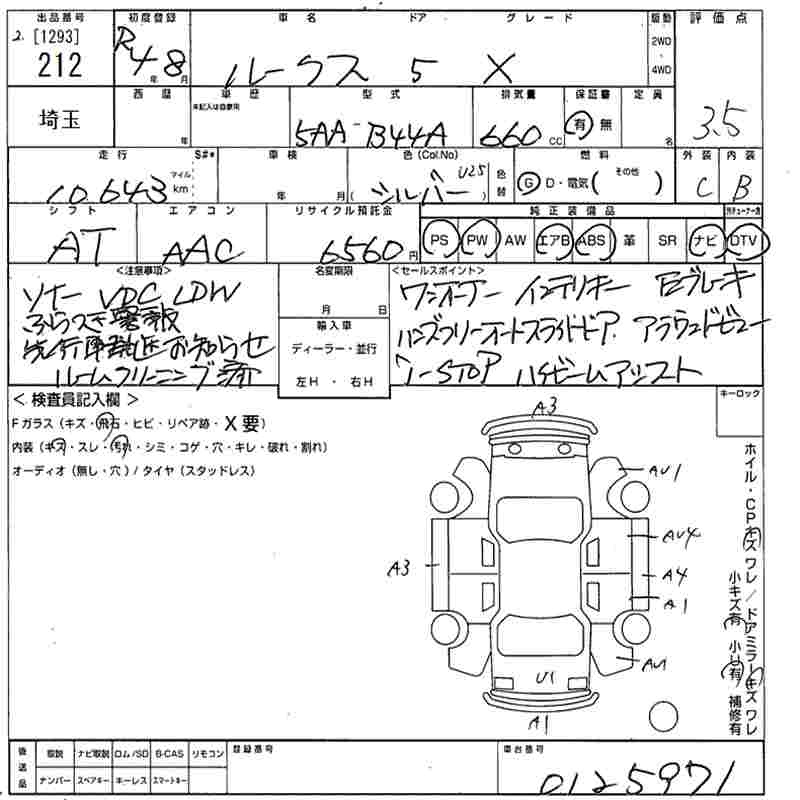 出品番号 初度登録 車名 ドア グレード 駆動 評価点
2. [1293] R4 8 ルークス 5 X 2WD
212 年 月 4WD
西暦 車歴 型式 排気量 保証書 定員
未記入は自家用
埼玉 年 5AA-B44A 660 cc 有 無 名 3.5
走行 S#* 車検 色(Col.No) 燃料 外装 内装
10,643 マイル km 年 月 ( シルバー U25 ) 色替 G D・電気 ( その他 ) C B
シフト エアコン リサイクル預託金 純正装備品
AT AAC 6560円 PS PW AW エアB ABS 革 SR ナビ DTV
<注意事項> 名変期限 <セールスポイント>
ソナー VDC LDW ワンオーナー インテリキー Eブレーキ
ふらつき警報 月 日 ハンズフリーオートスライドドア アラウンドビュー
先行車発進お知らせ 輸入車 I-STOP ハイビームアシスト
ルームクリーニング済 ディーラー・並行
左H ・ 右H
< 検査員記入欄 > キーロック
Fガラス (キズ・飛石・ヒビ・リペア跡・X要)
内装 (キズ・スレ・汚れ・シミ・コゲ・穴・キレ・破れ・割れ)
オーディオ (無し・穴) / タイヤ (スタッドレス)
A3
AU1
AU4
A3 A4
A1
AU1
U1
A1
ホイル・CPキズ ワレ / ドアミラーキズ ワレ
小キズ有 小U有 補修有
後送品 取説 ナビ取説 ロム/SD B-CAS リモコン 登録番号 車台番号
ナンバー スペアキー キーレス スマートキー 0125971